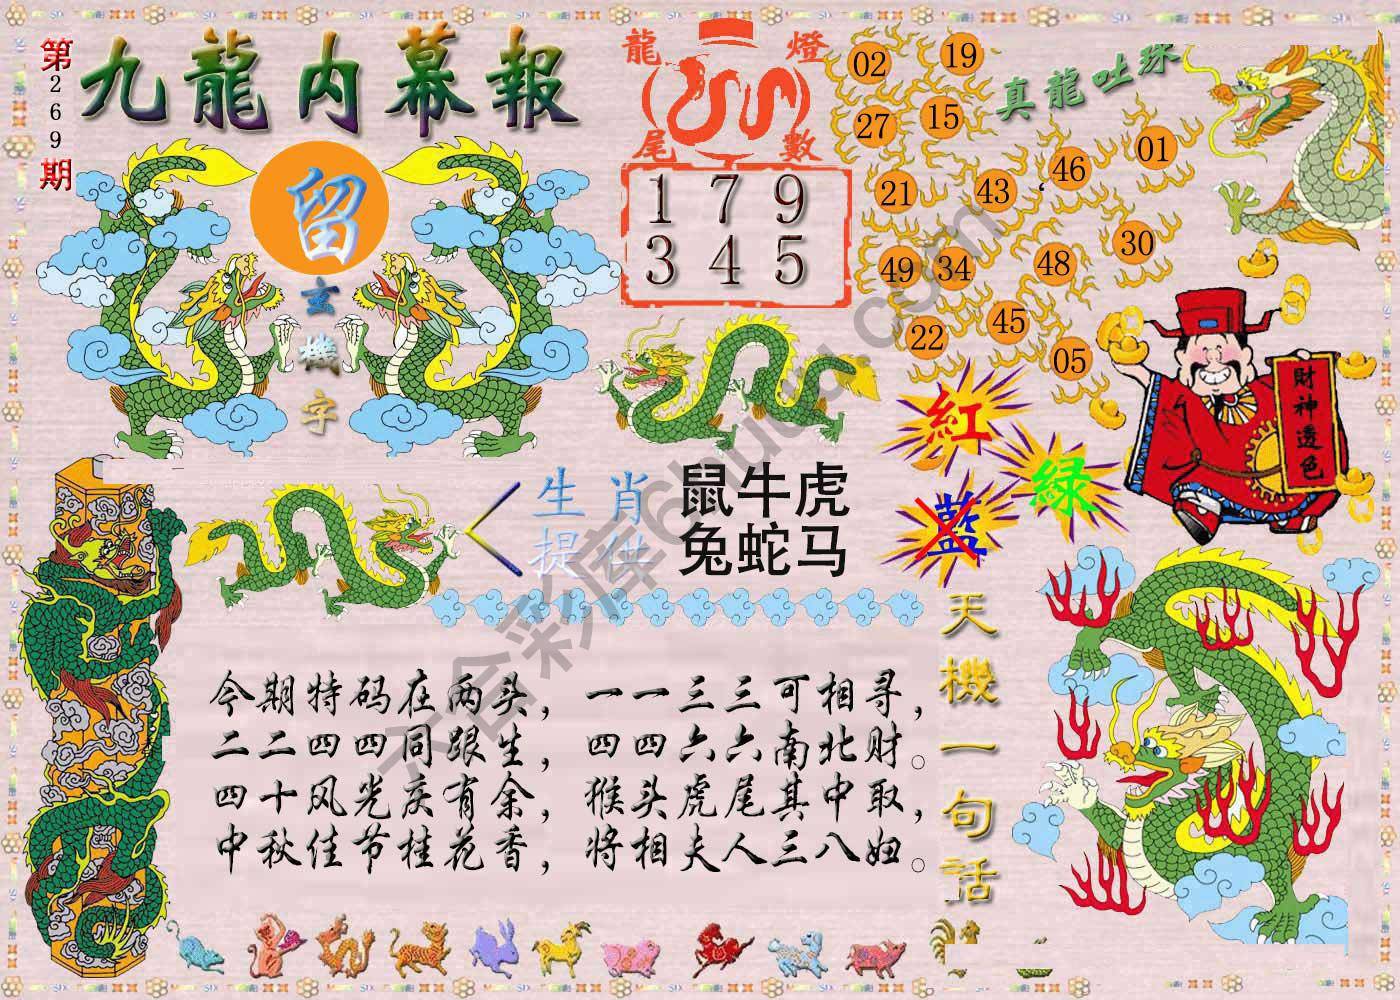 第269期
九龍内幕報
留
玄機字
龍燈
尾數
1 7 9
3 4 5
真龍吐珠
02 19
27 15
21 43 46 01
49 34 48 30
22 45 05
財神透色
紅
藍 緑
生肖 鼠牛虎
提供 兔蛇马
天機一句話
今期特码在两头，一一三三可相寻，
二二四四同跟生，四四六六南北财。
四十风光庆有余，猴头虎尾其中取，
中秋佳节桂花香，将相夫人三八妇。
六合彩库6huqq.com